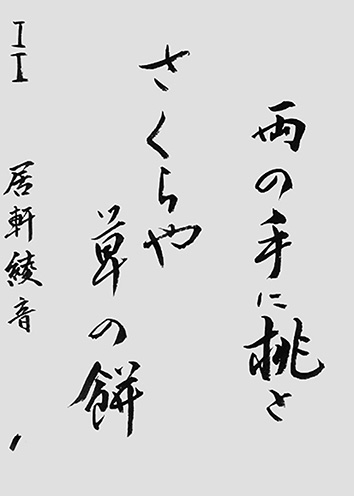 両の手に桃と
さくらや
草の餅
II 居軒綾音